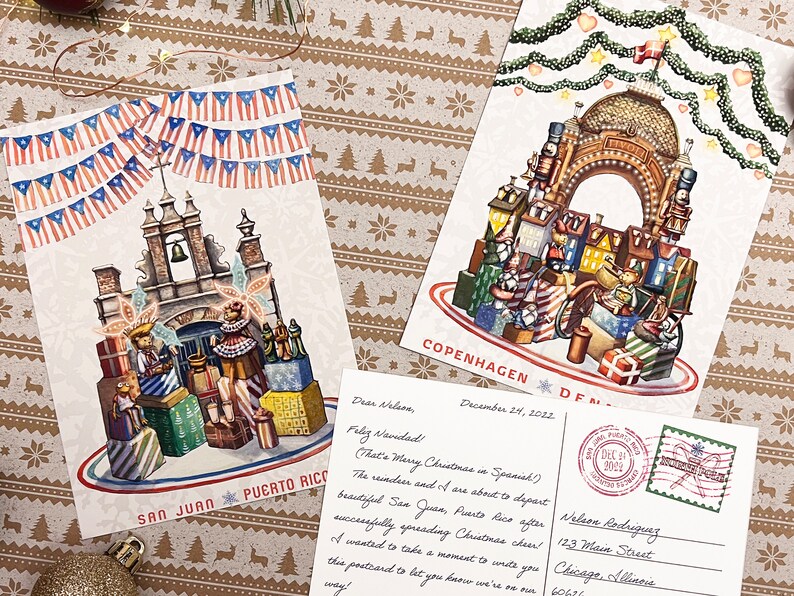 SAN JUAN PUERTO RICO
COPENHAGEN DEN
Dear Nelson,
December 24, 2022
Feliz Navidad!
(That's Merry Christmas in Spanish!)
The reindeer and I are about to depart
beautiful San Juan, Puerto Rico after
successfully spreading Christmas cheer!
I wanted to take a moment to write you
this postcard to let you know we're on our
way!
SAN JUAN, PUERTO RICO
DEC 24
2022
EXPRESS DELIVERY
Nelson Rodriguez
123 Main Street
Chicago, Illinois